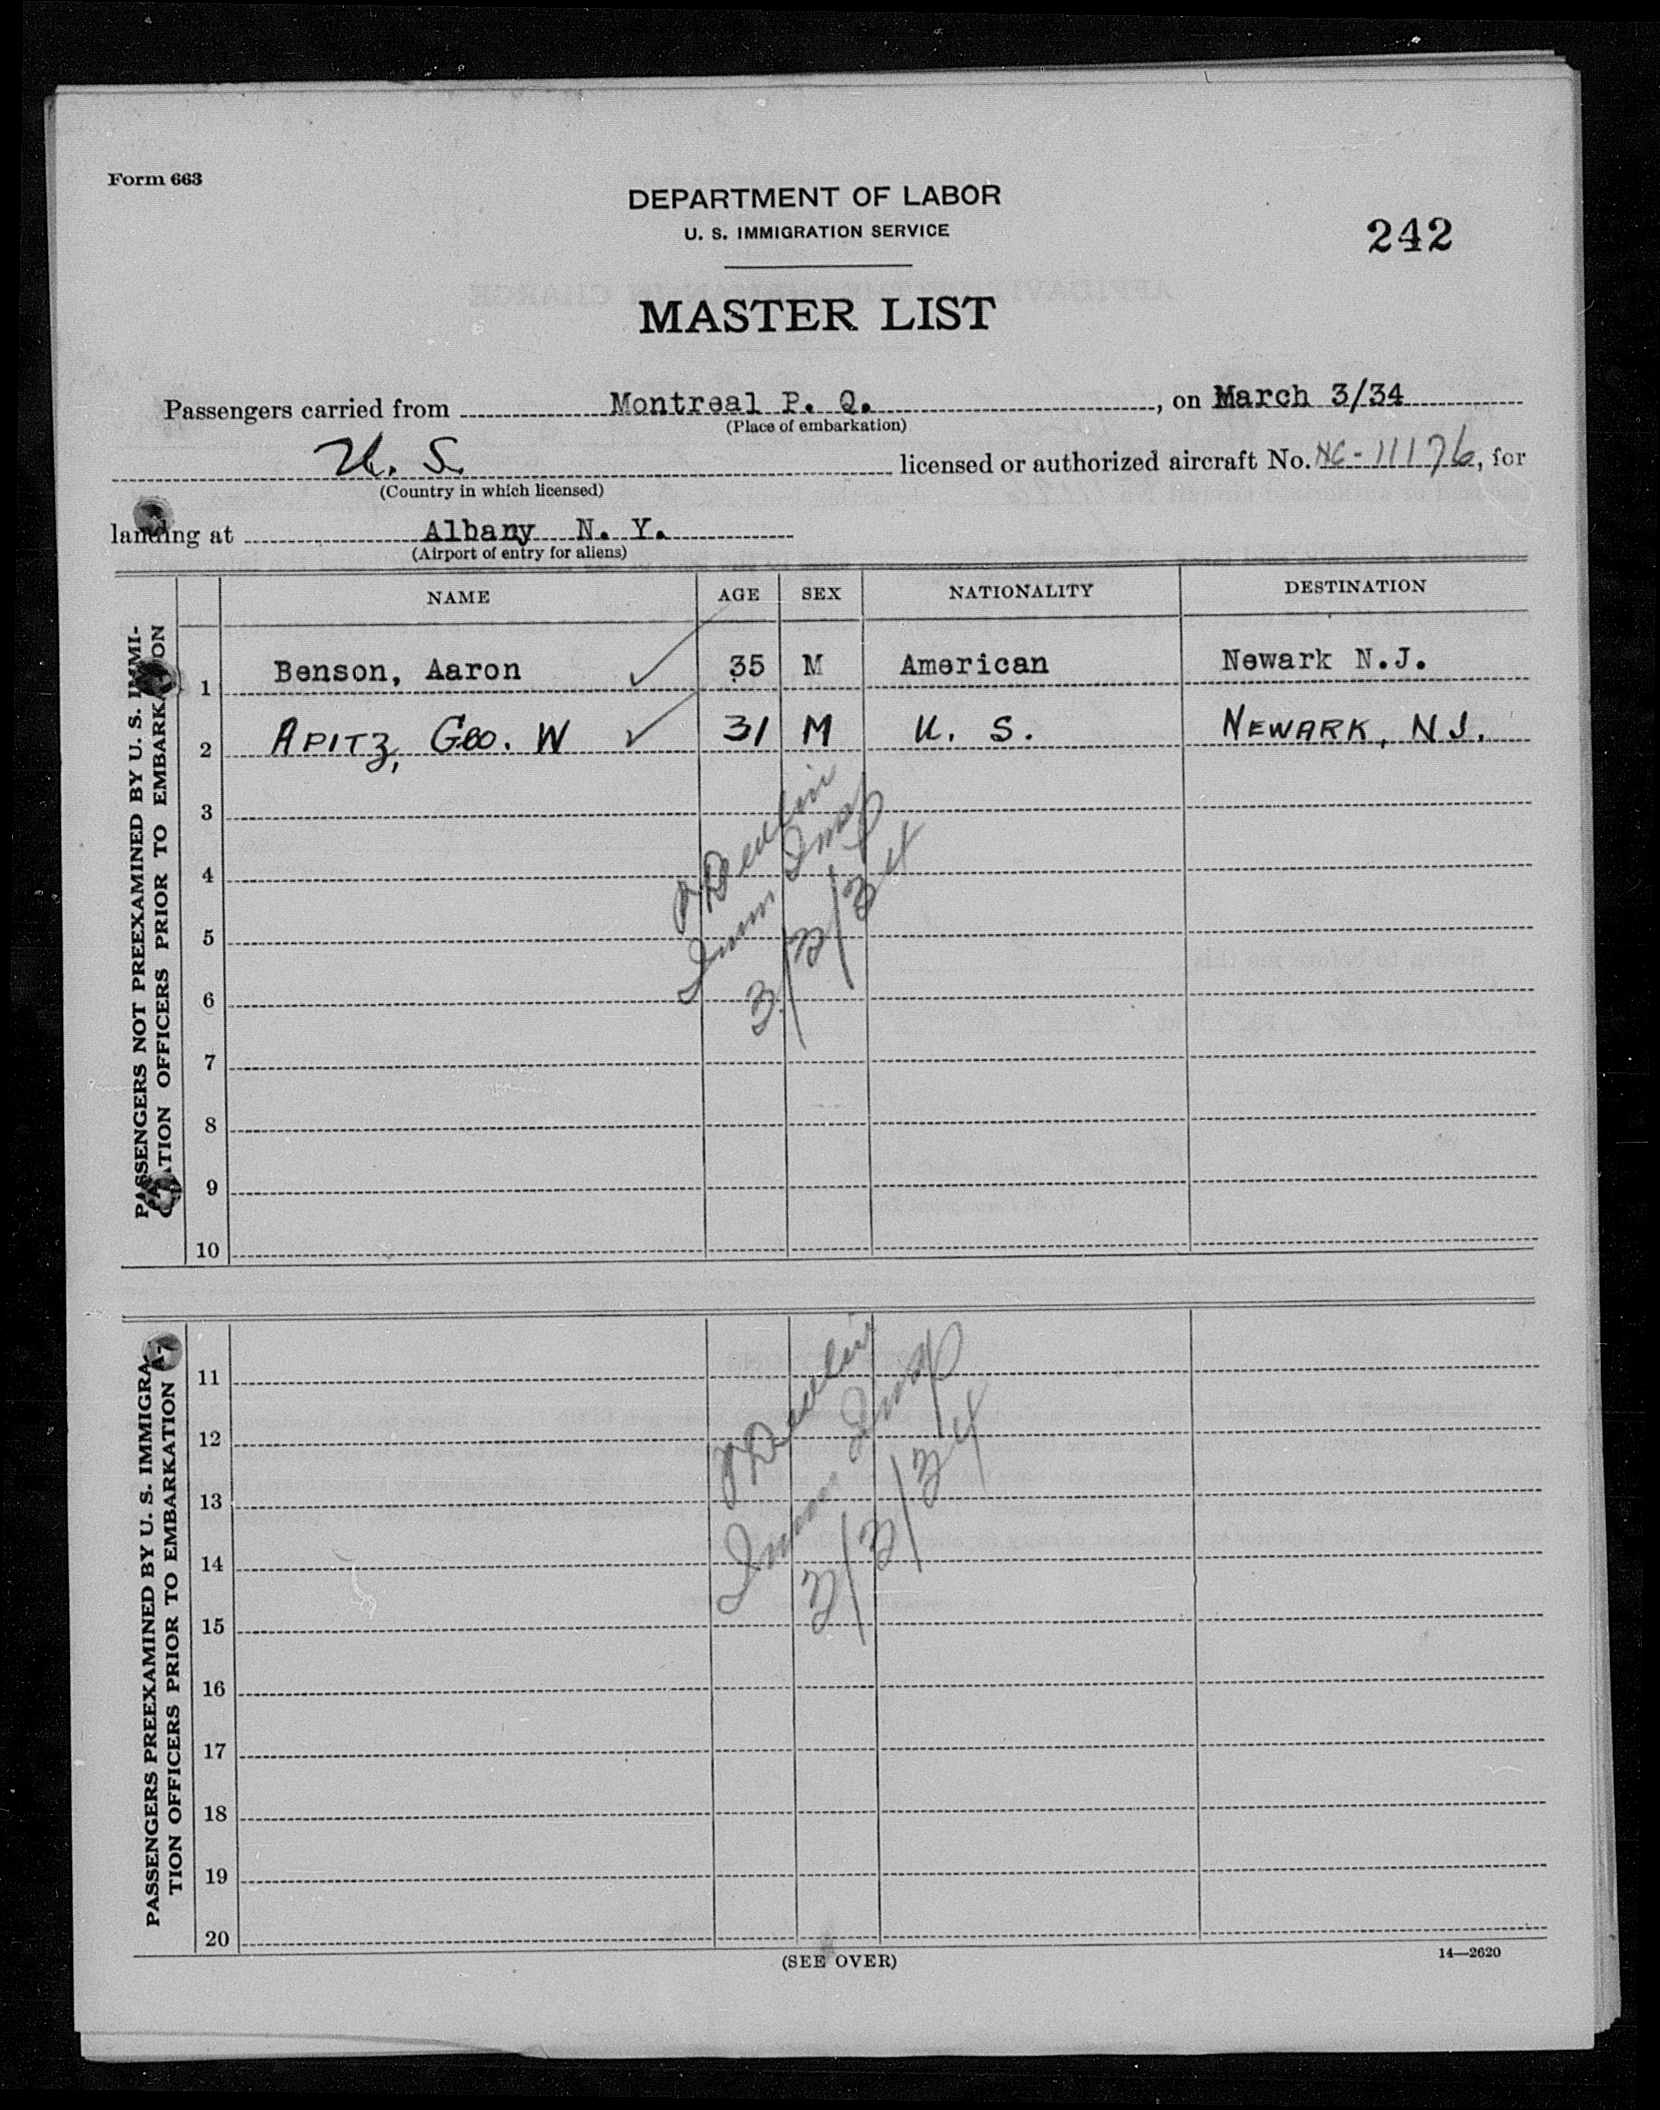 Form 663
DEPARTMENT OF LABOR
U. S. IMMIGRATION SERVICE
242
MASTER LIST
Passengers carried from Montreal P. Q., on March 3/34
(Place of embarkation)
U. S. licensed or authorized aircraft No. NC-11176, for
(Country in which licensed)
landing at Albany N. Y.
(Airport of entry for aliens)
NAME AGE SEX NATIONALITY DESTINATION
PASSENGERS NOT PREEXAMINED BY U. S. IMMI-
GRATION OFFICERS PRIOR TO EMBARKATION
1 Benson, Aaron ✓ 35 M American Newark N.J.
2 APITZ, GEO. W ✓ 31 M U. S. NEWARK, N.J.
3
4
5
6
7
8
9
10
Devlin
Imm Insp
3/3/34
PASSENGERS PREEXAMINED BY U. S. IMMIGRA-
TION OFFICERS PRIOR TO EMBARKATION
11
12
13
14
15
16
17
18
19
20
Devlin
Imm Insp
3/3/34
(SEE OVER)
14—2620